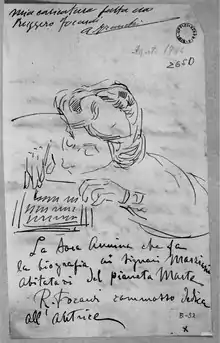 mia caricatura fatta da
Ruggero Focardi
265D
La Dora Annina che fa
la biografia ai signori Marziani
abitatori del pianeta Marte
R. Focardi commosso dedica
all'
B-53